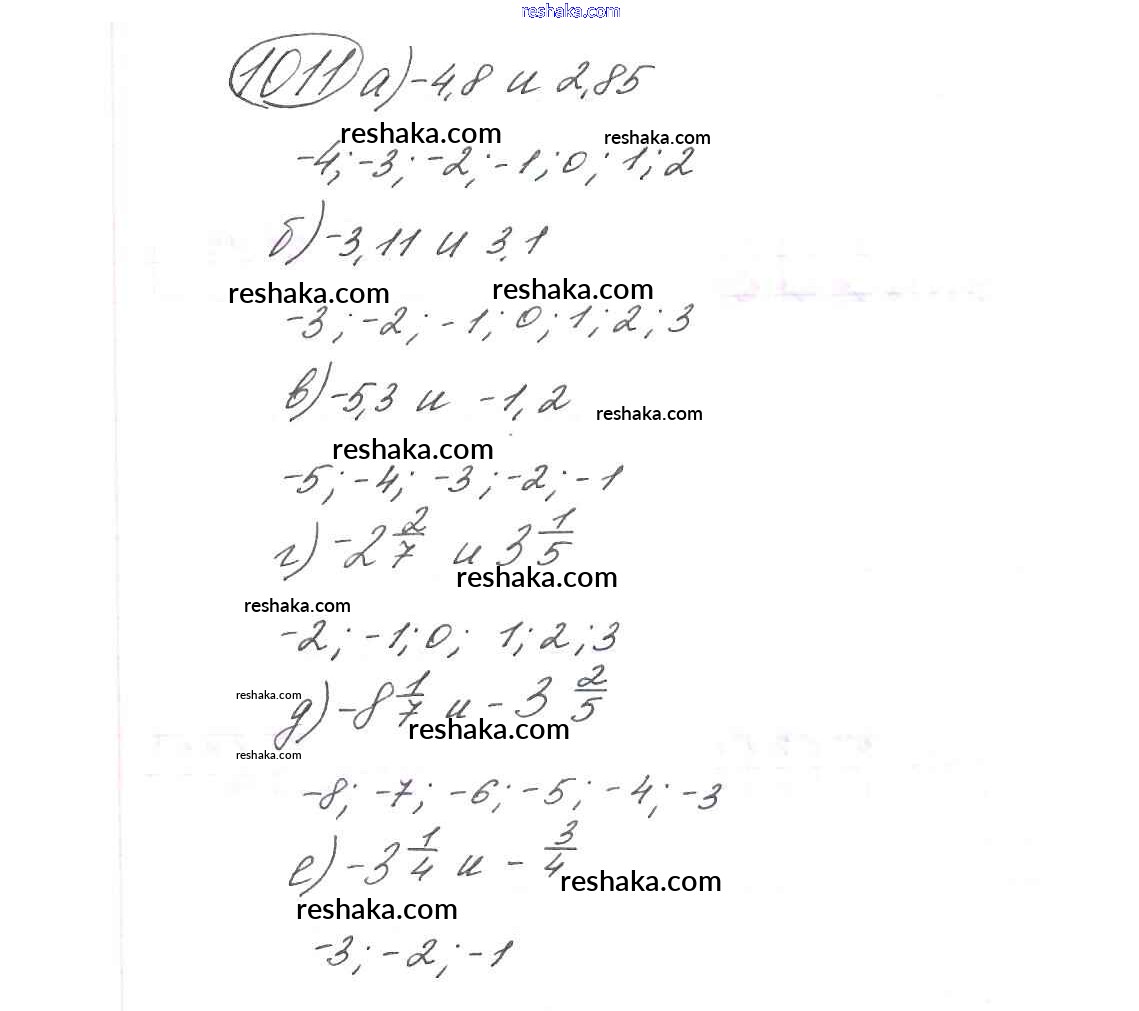 reshaka.com
1011 а) -4,8 и 2,85
reshaka.com reshaka.com
-4; -3; -2; -1; 0; 1; 2
б) -3,11 и 3,1
reshaka.com reshaka.com
-3; -2; -1; 0; 1; 2; 3
в) -5,3 и -1,2
reshaka.com
reshaka.com
-5; -4; -3; -2; -1
г) -2 2/7 и 3 1/5
reshaka.com
reshaka.com
-2; -1; 0; 1; 2; 3
reshaka.com
д) -8 1/7 и -3 2/5
reshaka.com
reshaka.com
-8; -7; -6; -5; -4; -3
е) -3 1/4 и -3/4
reshaka.com
reshaka.com
-3; -2; -1